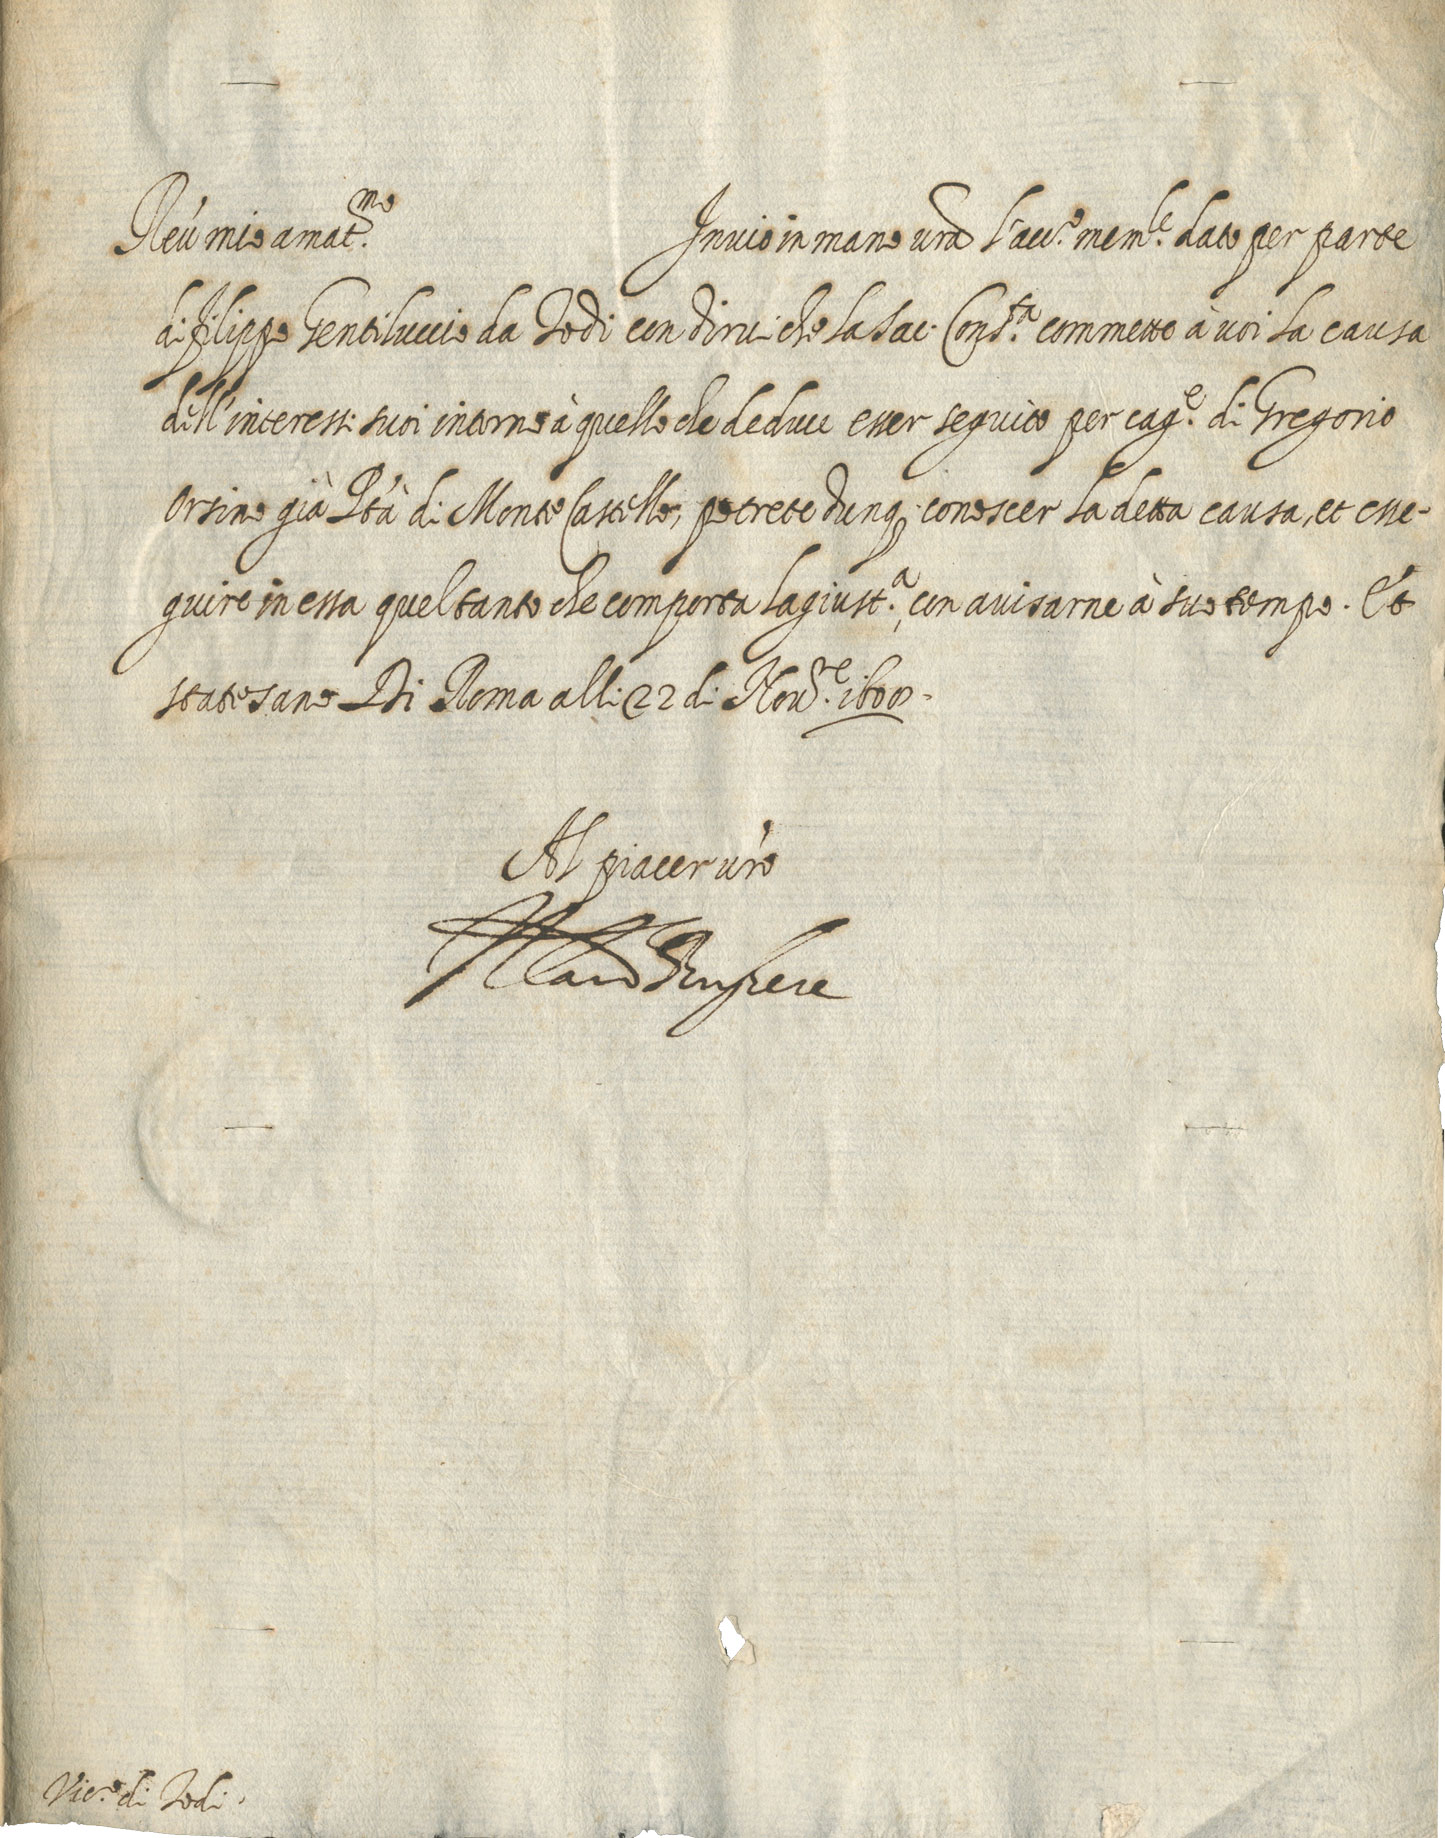 Reu. mio amat.mo Inuio in mano vra l'acc.o mem.le dato per parte
di filippo Gentiluccio da Todi con dirui che la Sac. Cons.ta commette à uoi la causa
dell'interessi suoi intorno à quello che deduce esser seguito per cag.e di Gregorio
Orsino già Ptà di Monte Castello, potrete dunq. conoscer la detta causa, et esse-
guire in essa quel tanto che comporta la giust.a, con auisarne à suo tempo. Et
state sano Di Roma alli 22 di Nou.re 1600.
Al piacer vro
Vic.o di Todi.